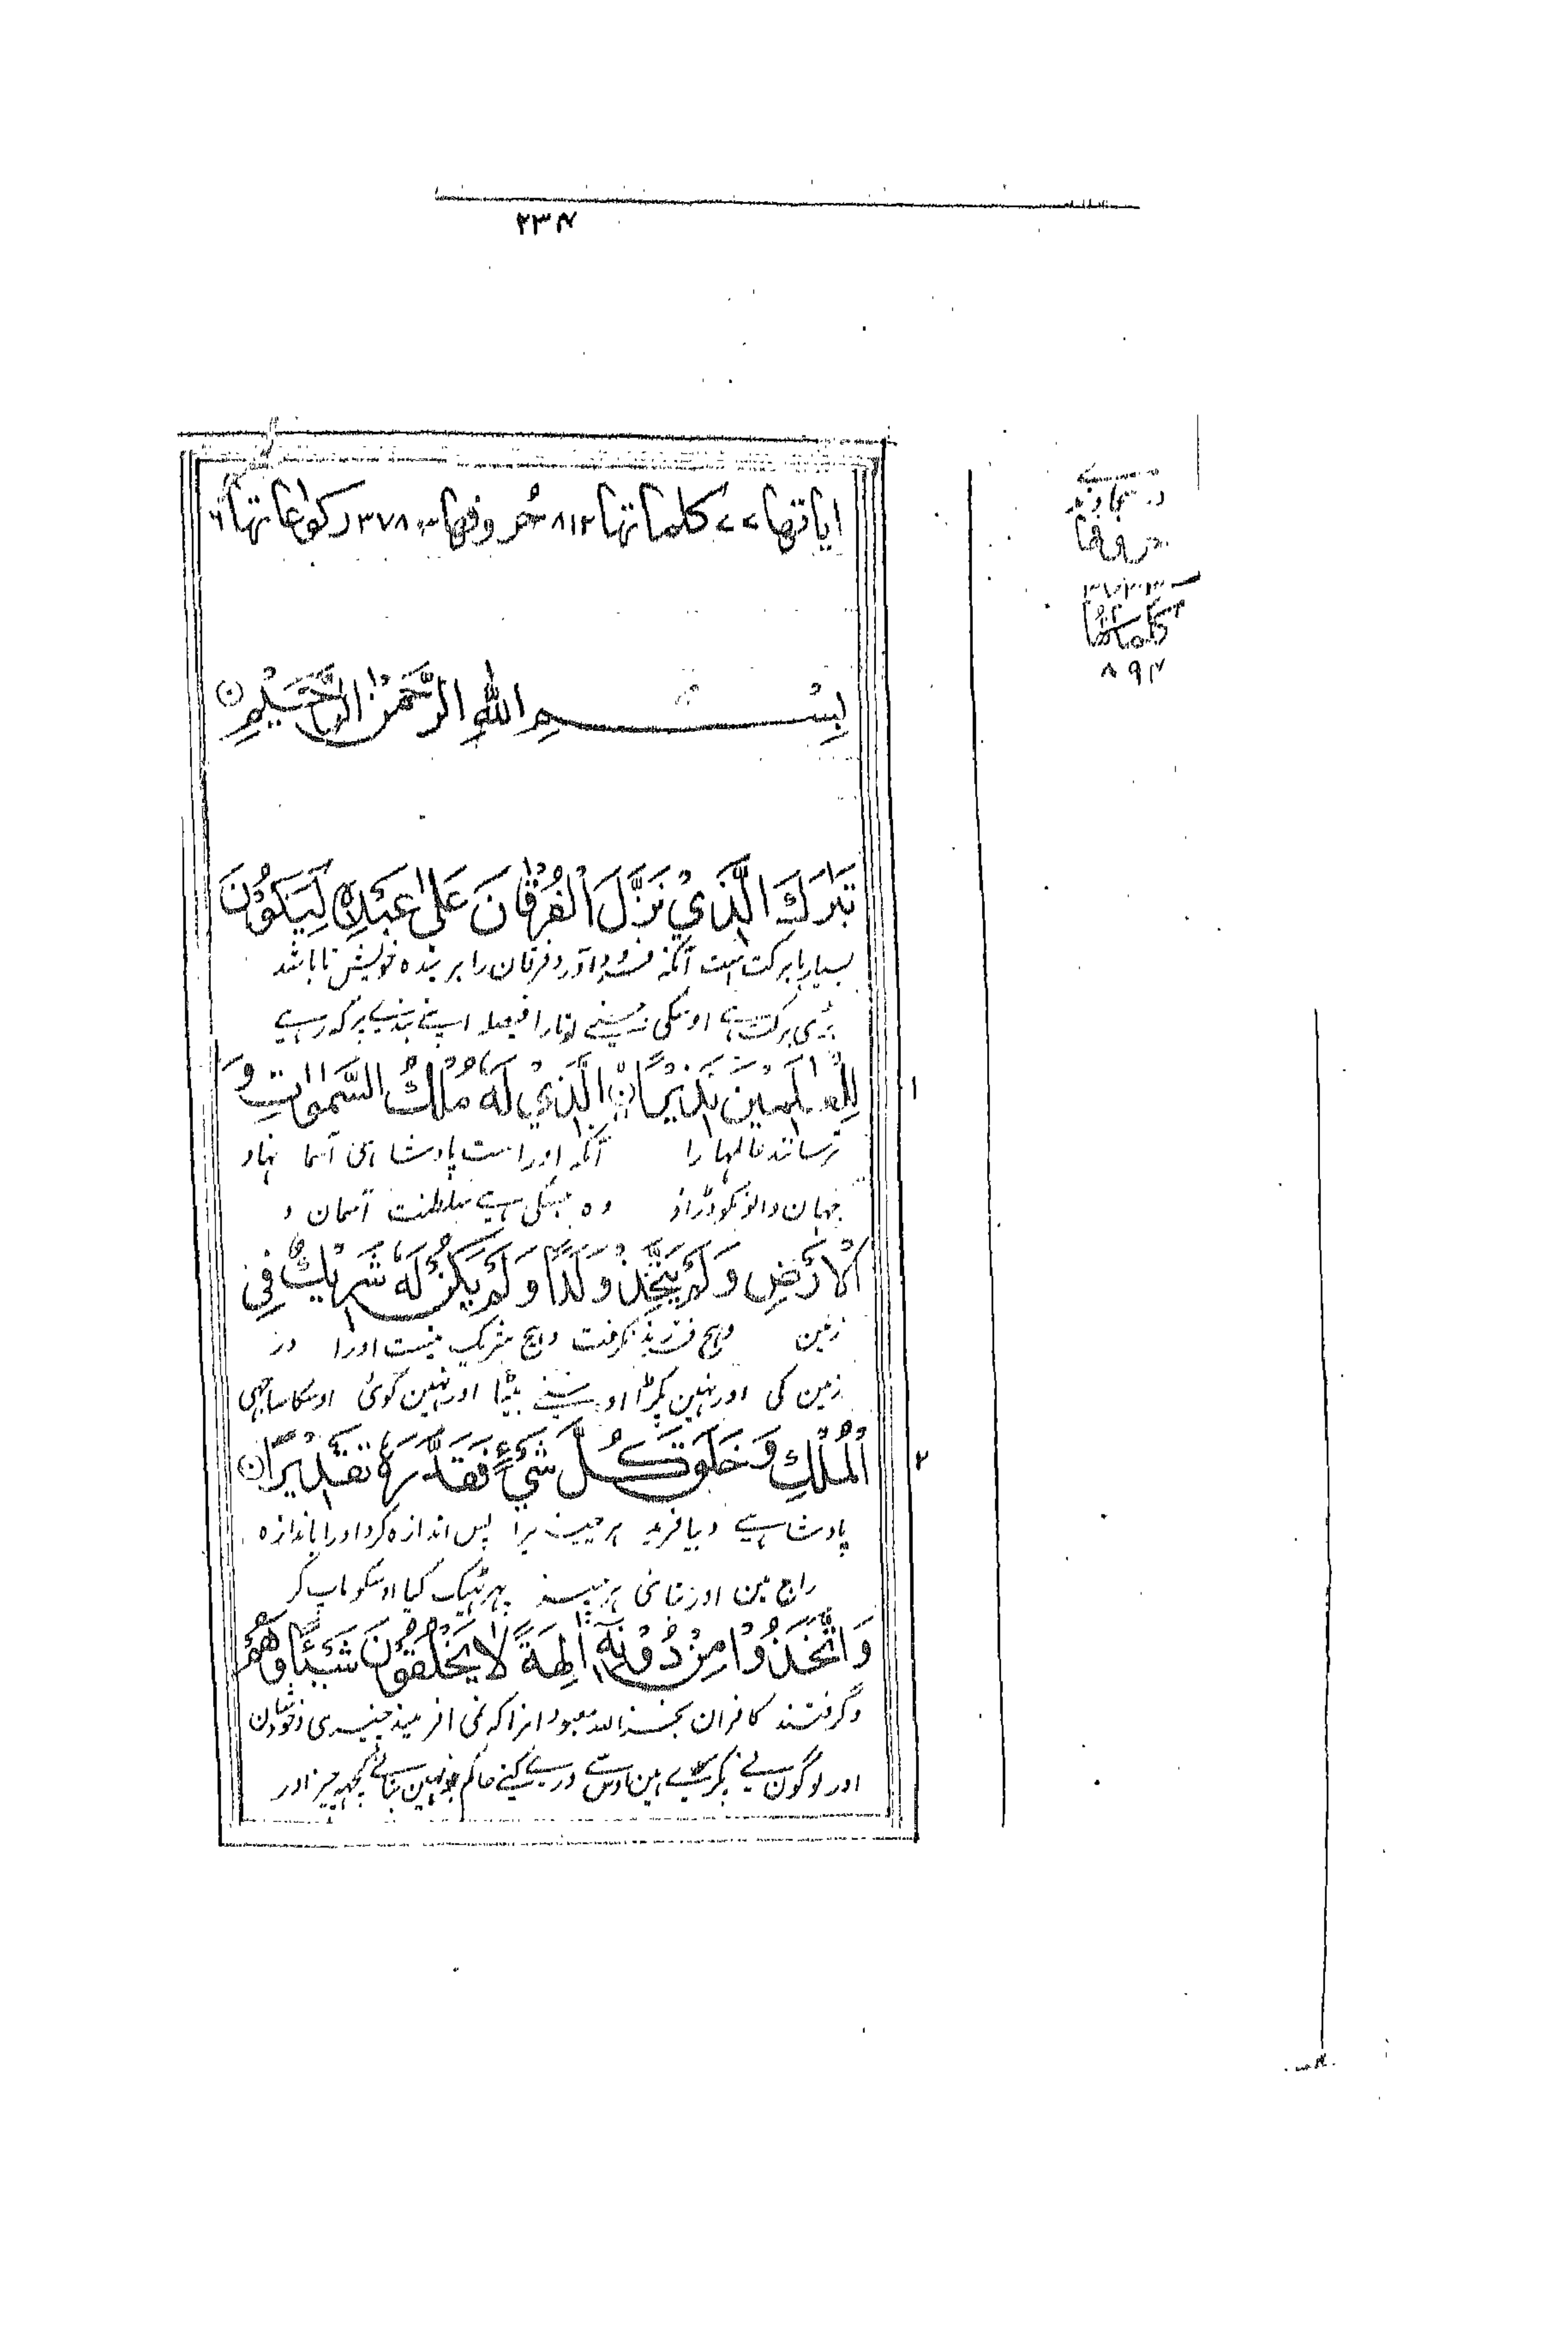 ۲۳۴
اياتها ۷۷ كلماتها ۸۱۲ حروفها ۳۷۸۰ ركوعاتها ۶
بِسْمِ اللّٰهِ الرَّحْمٰنِ الرَّحِيْمِ
تَبٰرَكَ الَّذِيْ نَزَّلَ الْفُرْقَانَ عَلٰى عَبْدِهٖ لِيَكُوْنَ
بسیار با برکت است آنکه فرود آورد فرقان را بر بنده خویش تا باشد
بڑی برکت ہے اوسکی جسنے اوتارا فیصلہ اپنے بندے پر کہ رہے
لِلْعٰلَمِيْنَ نَذِيْرًا الَّذِيْ لَهٗ مُلْكُ السَّمٰوٰتِ وَ
۱
ترسانند عالمها را آنکه اوراست پادشاهی آسما نهاو
جہان والونکو ڈرانے وہ جسکی ہے سلطنت آسمان و
الْاَرْضِ وَلَمْ يَتَّخِذْ وَلَدًا وَّلَمْ يَكُنْ لَّهٗ شَرِيْكٌ فِي
زمین و هیچ فرزند نگرفت و هیچ شریک نیست اورا در
زمین کی اور نہین پکڑا اوسنے بیٹا اور نہین کوئی اوسکا ساجھی
الْمُلْكِ وَخَلَقَ كُلَّ شَيْءٍ فَقَدَّرَهٗ تَقْدِيْرًا
۲
پادشاہے و بیافرید هر چیز را پس اندازه کرد اورا باندازه
راج مین اور بنائی ہر چیز پہر ٹہیک کیا اوسکو ماپ کر
وَاتَّخَذُوْا مِنْ دُوْنِهٖٓ اٰلِهَةً لَّا يَخْلُقُوْنَ شَيْـًٔا وَّهُمْ
و گرفتند کافران بجز الله معبود انرا که نمی آفریند چیزی و خودشان
اور لوگون نے پکڑے ہین اوس سے ورے کتنے حاکم جو نہین بناتے کچہہ چیز اور
حروفها
كلماتها
۸۹۲